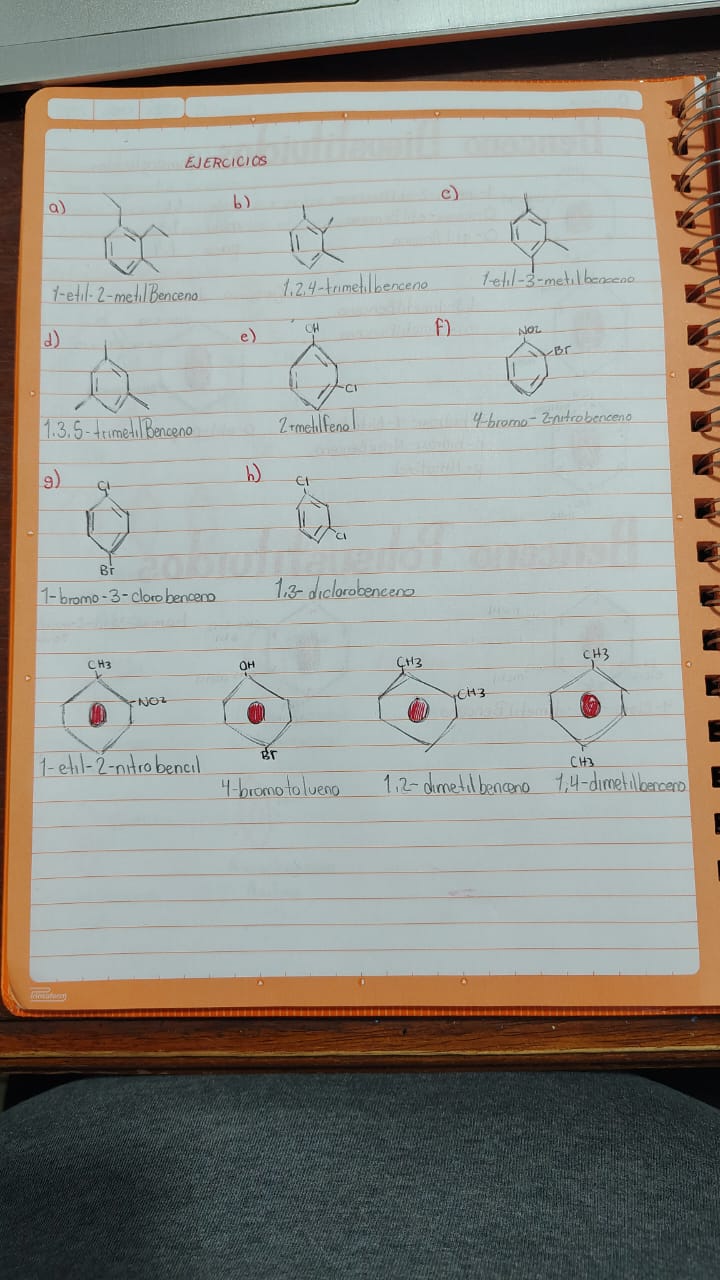 EJERCICIOS
a)
b)
c)
1-etil-2-metilBenceno
1,2,4-trimetilbenceno
1-etil-3-metilbenceno
d)
e)
f)
OH
Cl
NO2
Br
1,3,5-trimetilBenceno
2-metilfenol
4-bromo-2-nitrobenceno
g)
h)
Cl
Br
Cl
Cl
1-bromo-3-clorobenceno
1,3-diclorobenceno
CH3
NO2
OH
Br
CH3
CH3
CH3
CH3
1-etil-2-nitrobencil
4-bromotolueno
1,2-dimetilbenceno
1,4-dimetilbenceno